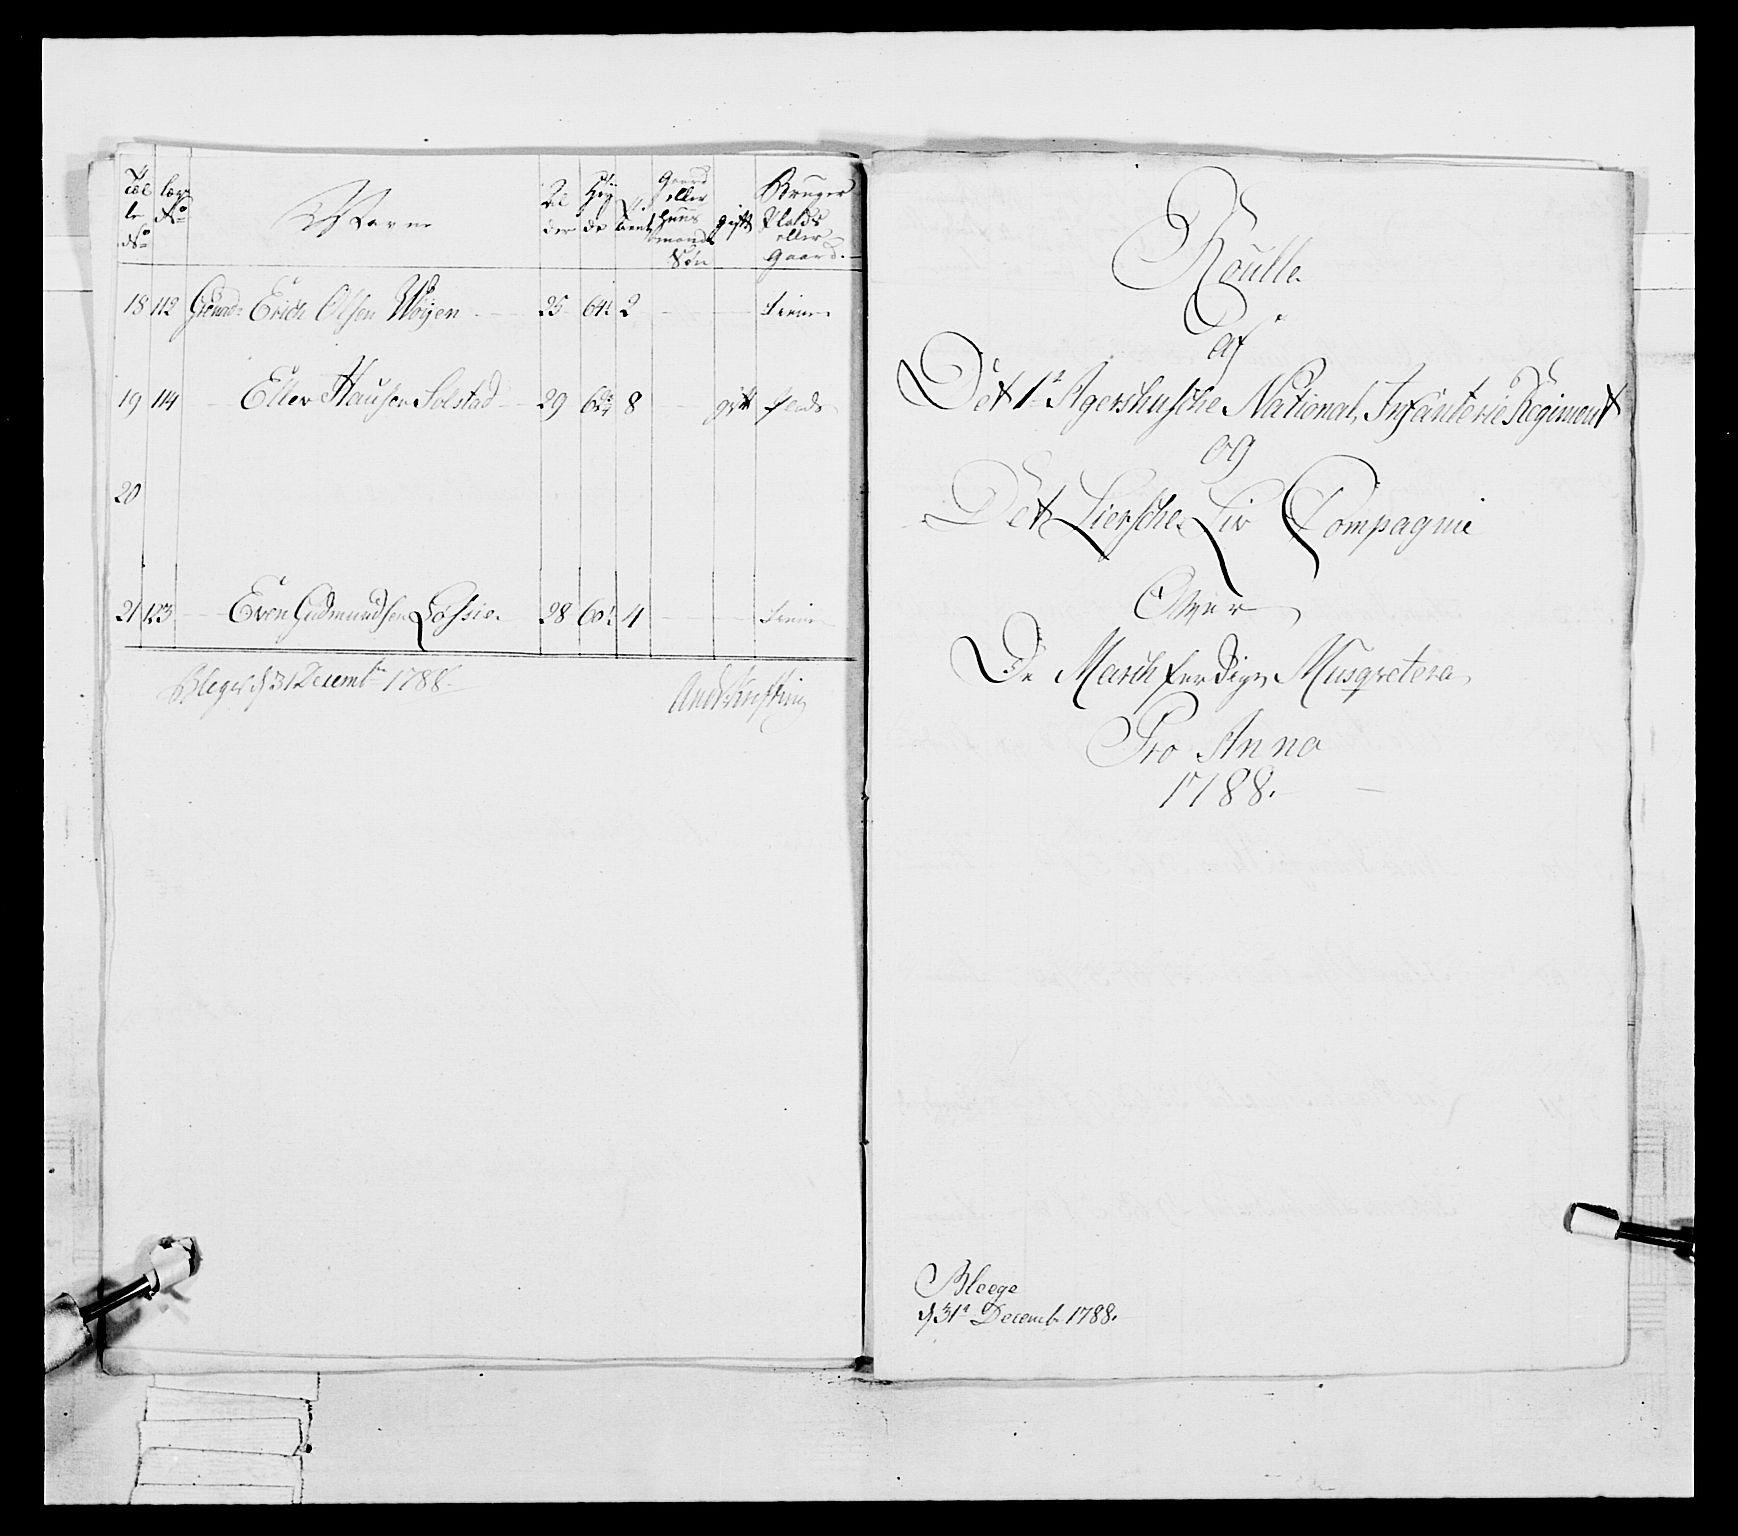 Tæl le No Læg No Navne Al der Høy de Tient Gaard eller Huus mands Søn gift Bruger Plads eller Gaard.
18 112 Grenad: Erich Olsen Wøyen 25 64½ 2 Tiener
19 114 Eller Hansen Solstad 29 8 gift Plads
20
21 123 Even Gudmundsen 28 60½ 4 Tiener
Bleger d 31 Decembr 1788
Roulle
af
Det 1te Agershusiche National Infanterie Regiment
og
Det Liersche Liv Compagnie
Over
De March ferdige Musqvetera
Pro Anno
1788.
Bleege
d 31te Decemb 1788.